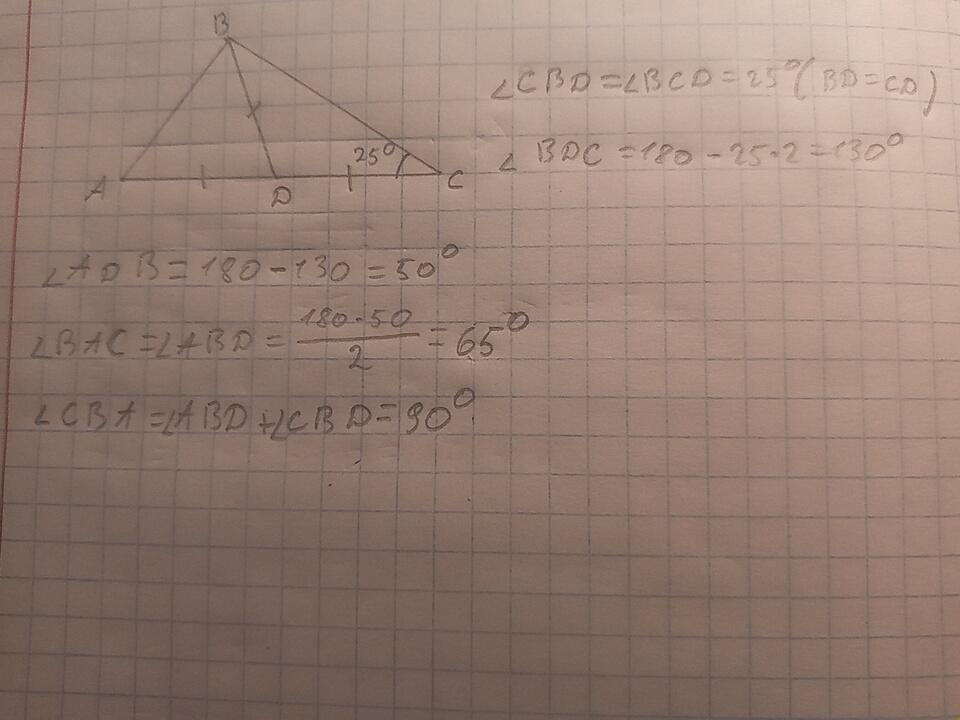 B
A
D
C
25°
∠CBD=∠BCD=25°(BD=CD)
∠BDC=180-25·2=130°
∠ADB=180-130=50°
∠BAC=∠ABD=\frac{180-50}{2}=65°
∠CBA=∠ABD+∠CBD=90°